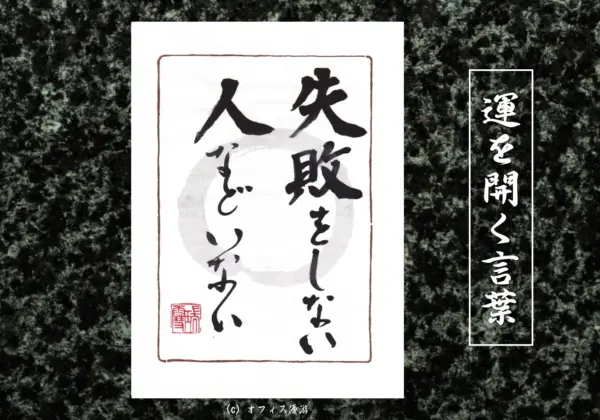 運を開く言葉
失敗をしない
人などいない
(C) オフィス優游